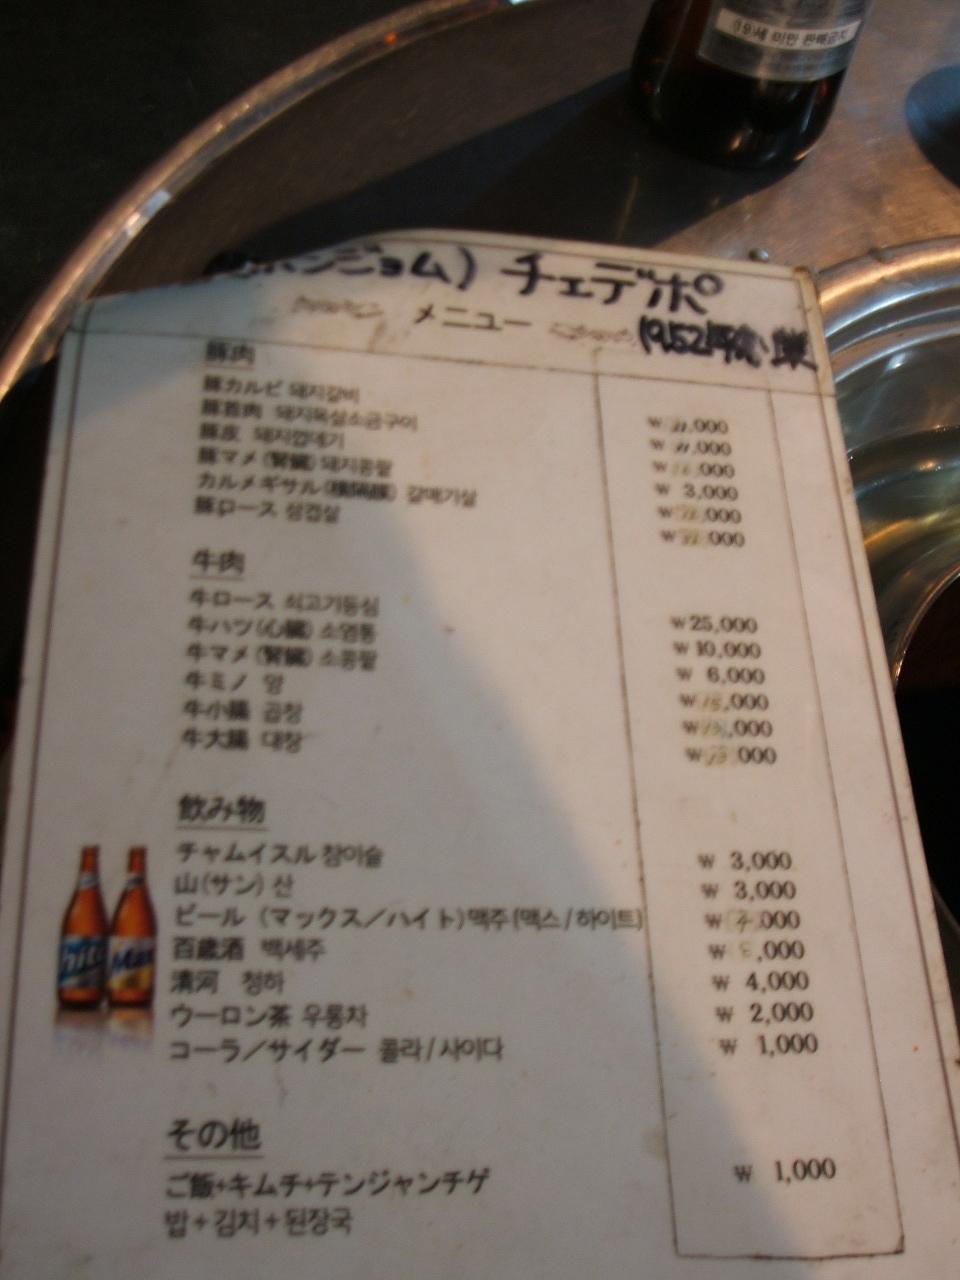 19세 미만 판매금지
ポンジョム) チェデポ
メニュー
豚肉
豚カルビ 돼지갈비
豚首肉 돼지목살소금구이 ,000
豚皮 돼지껍데기 ,000
豚マメ(腎臓) 돼지콩팥 ,000
カルメギサル(横隔膜) 갈매기살 ₩ 3,000
豚ロース 삼겹살 ,000
,000
牛肉
牛ロース 쇠고기등심 ₩25,000
牛ハツ(心臓) 소염통 ₩10,000
牛マメ(腎臓) 소콩팥 ₩ 6,000
牛ミノ 양 ,000
牛小腸 곱창 ,000
牛大腸 대창 ,000
飲み物
チャムイスル 참이슬 ₩ 3,000
山(サン) 산 ₩ 3,000
ビール (マックス/ハイト) 맥주(맥스/하이트) ,000
百歳酒 백세주 ,000
清河 청하 ₩ 4,000
ウーロン茶 우롱차 ₩ 2,000
コーラ/サイダー 콜라/사이다 ₩ 1,000
その他
ご飯+キムチ+テンジャンチゲ ₩ 1,000
밥+김치+된장국